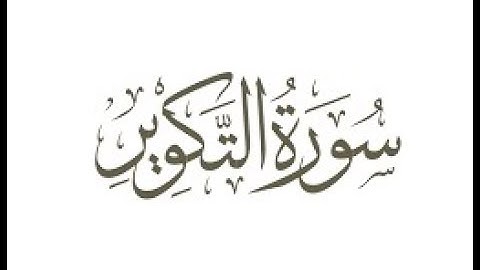 سُورَةُ التَّكْوِيرِ